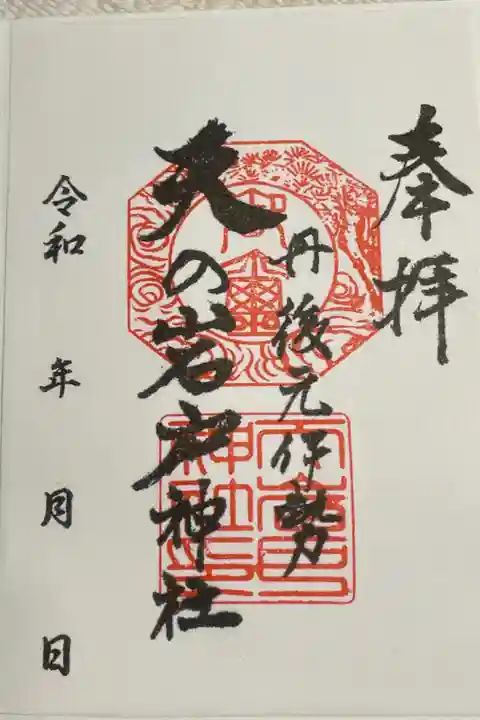 奉拝
丹後元伊勢
天の岩戸神社
令和 年 月 日
御璽